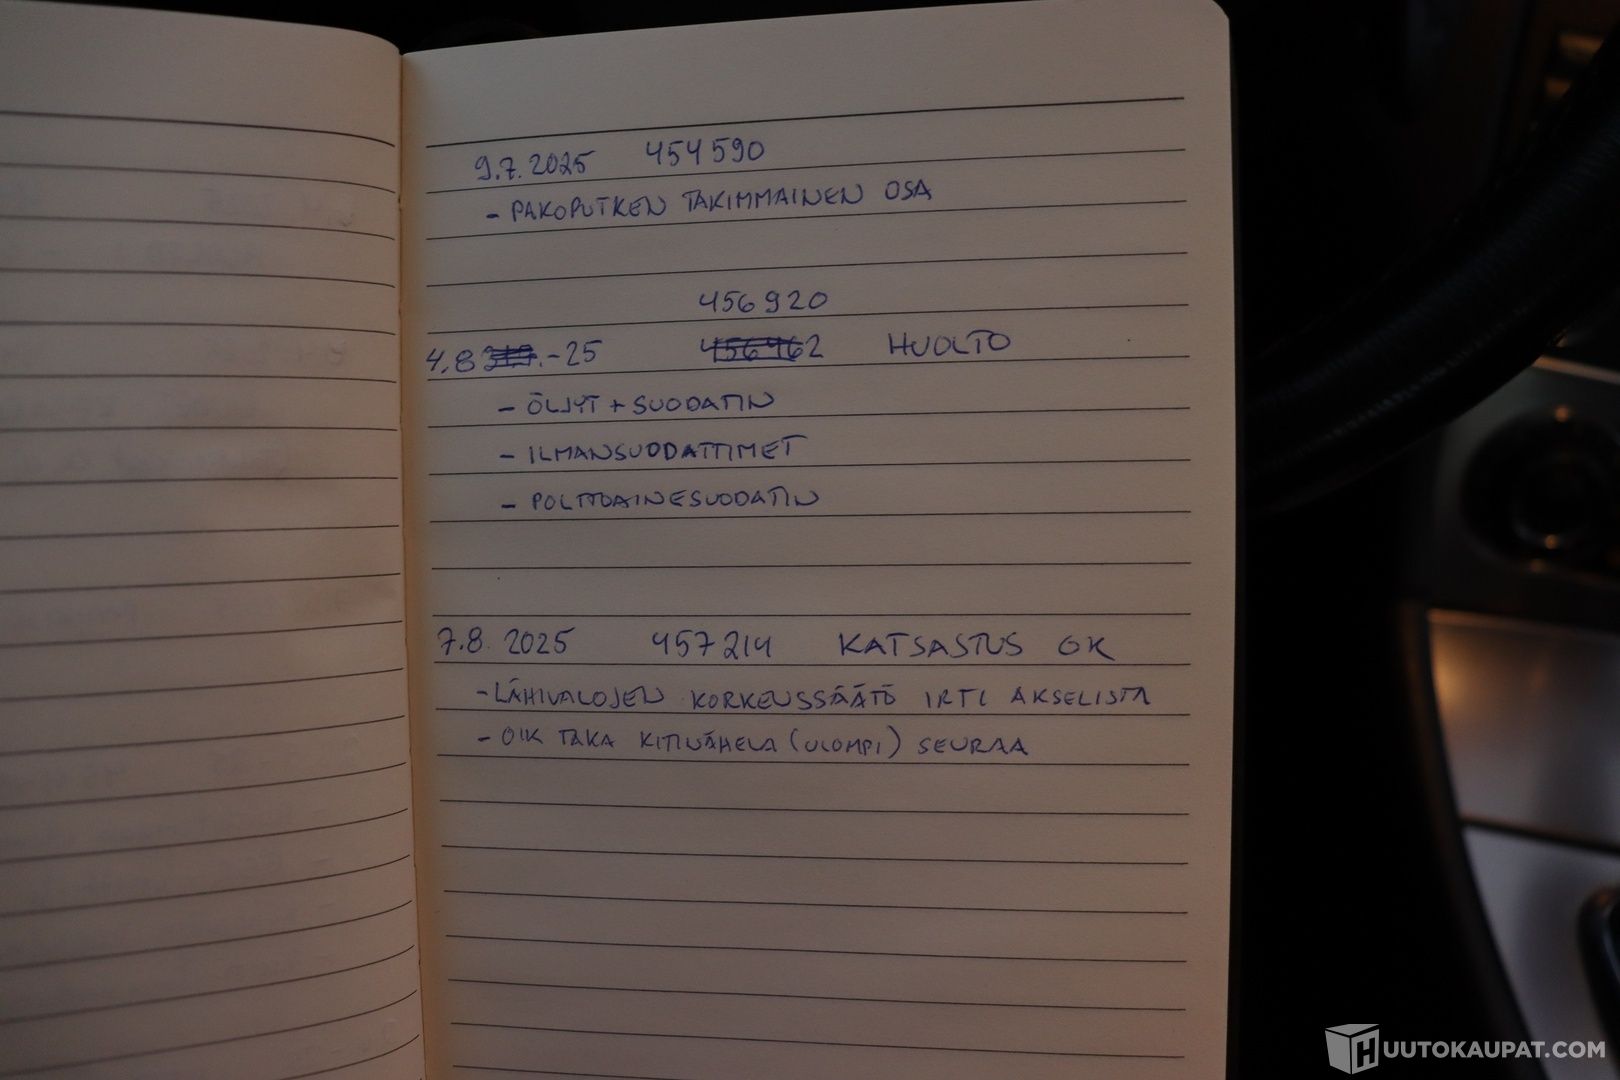 9.7.2025 454590
- PAKOPUTKEN TAKIMMAINEN OSA
456920
4.8 .-25 456462 HUOLTO
- ÖLJYT + SUODATIN
- ILMANSUODATTIMET
- POLTTOAINESUODATIN
7.8. 2025 457214 KATSASTUS OK
- LÄHIVALOJEN KORKEUSSÄÄTÖ IRTI AKSELISTA
- OIK TAKA KITINÄHELA (ULOMPI) SEURAA
HUUTOKAUPAT.COM